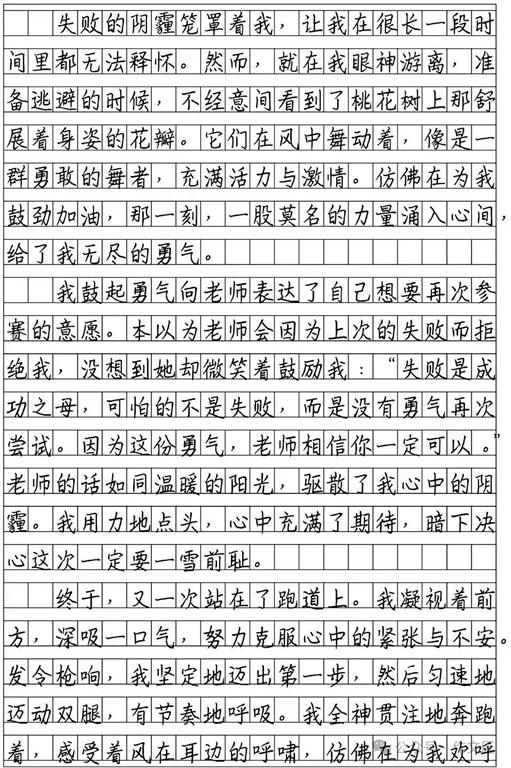 失败的阴霾笼罩着我，让我在很长一段时
间里都无法释怀。然而，就在我眼神游离，准
备逃避的时候，不经意间看到了桃花树上那舒
展着身姿的花瓣。它们在风中舞动着，像是一
群勇敢的舞者，充满活力与激情。仿佛在为我
鼓劲加油，那一刻，一股莫名的力量涌入心间，
给了我无尽的勇气。
我鼓起勇气向老师表达了自己想要再次参
赛的意愿。本以为老师会因为上次的失败而拒
绝我，没想到她却微笑着鼓励我：“失败是成
功之母，可怕的不是失败，而是没有勇气再次
尝试。因为这份勇气，老师相信你一定可以。”
老师的话如同温暖的阳光，驱散了我心中的阴
霾。我用力地点头，心中充满了期待，暗下决
心这次一定要一雪前耻。
终于，又一次站在了跑道上。我凝视着前
方，深吸一口气，努力克服心中的紧张与不安。
发令枪响，我坚定地迈出第一步，然后匀速地
迈动双腿，有节奏地呼吸。我全神贯注地奔跑
着，感受着风在耳边的呼啸，仿佛在为我欢呼